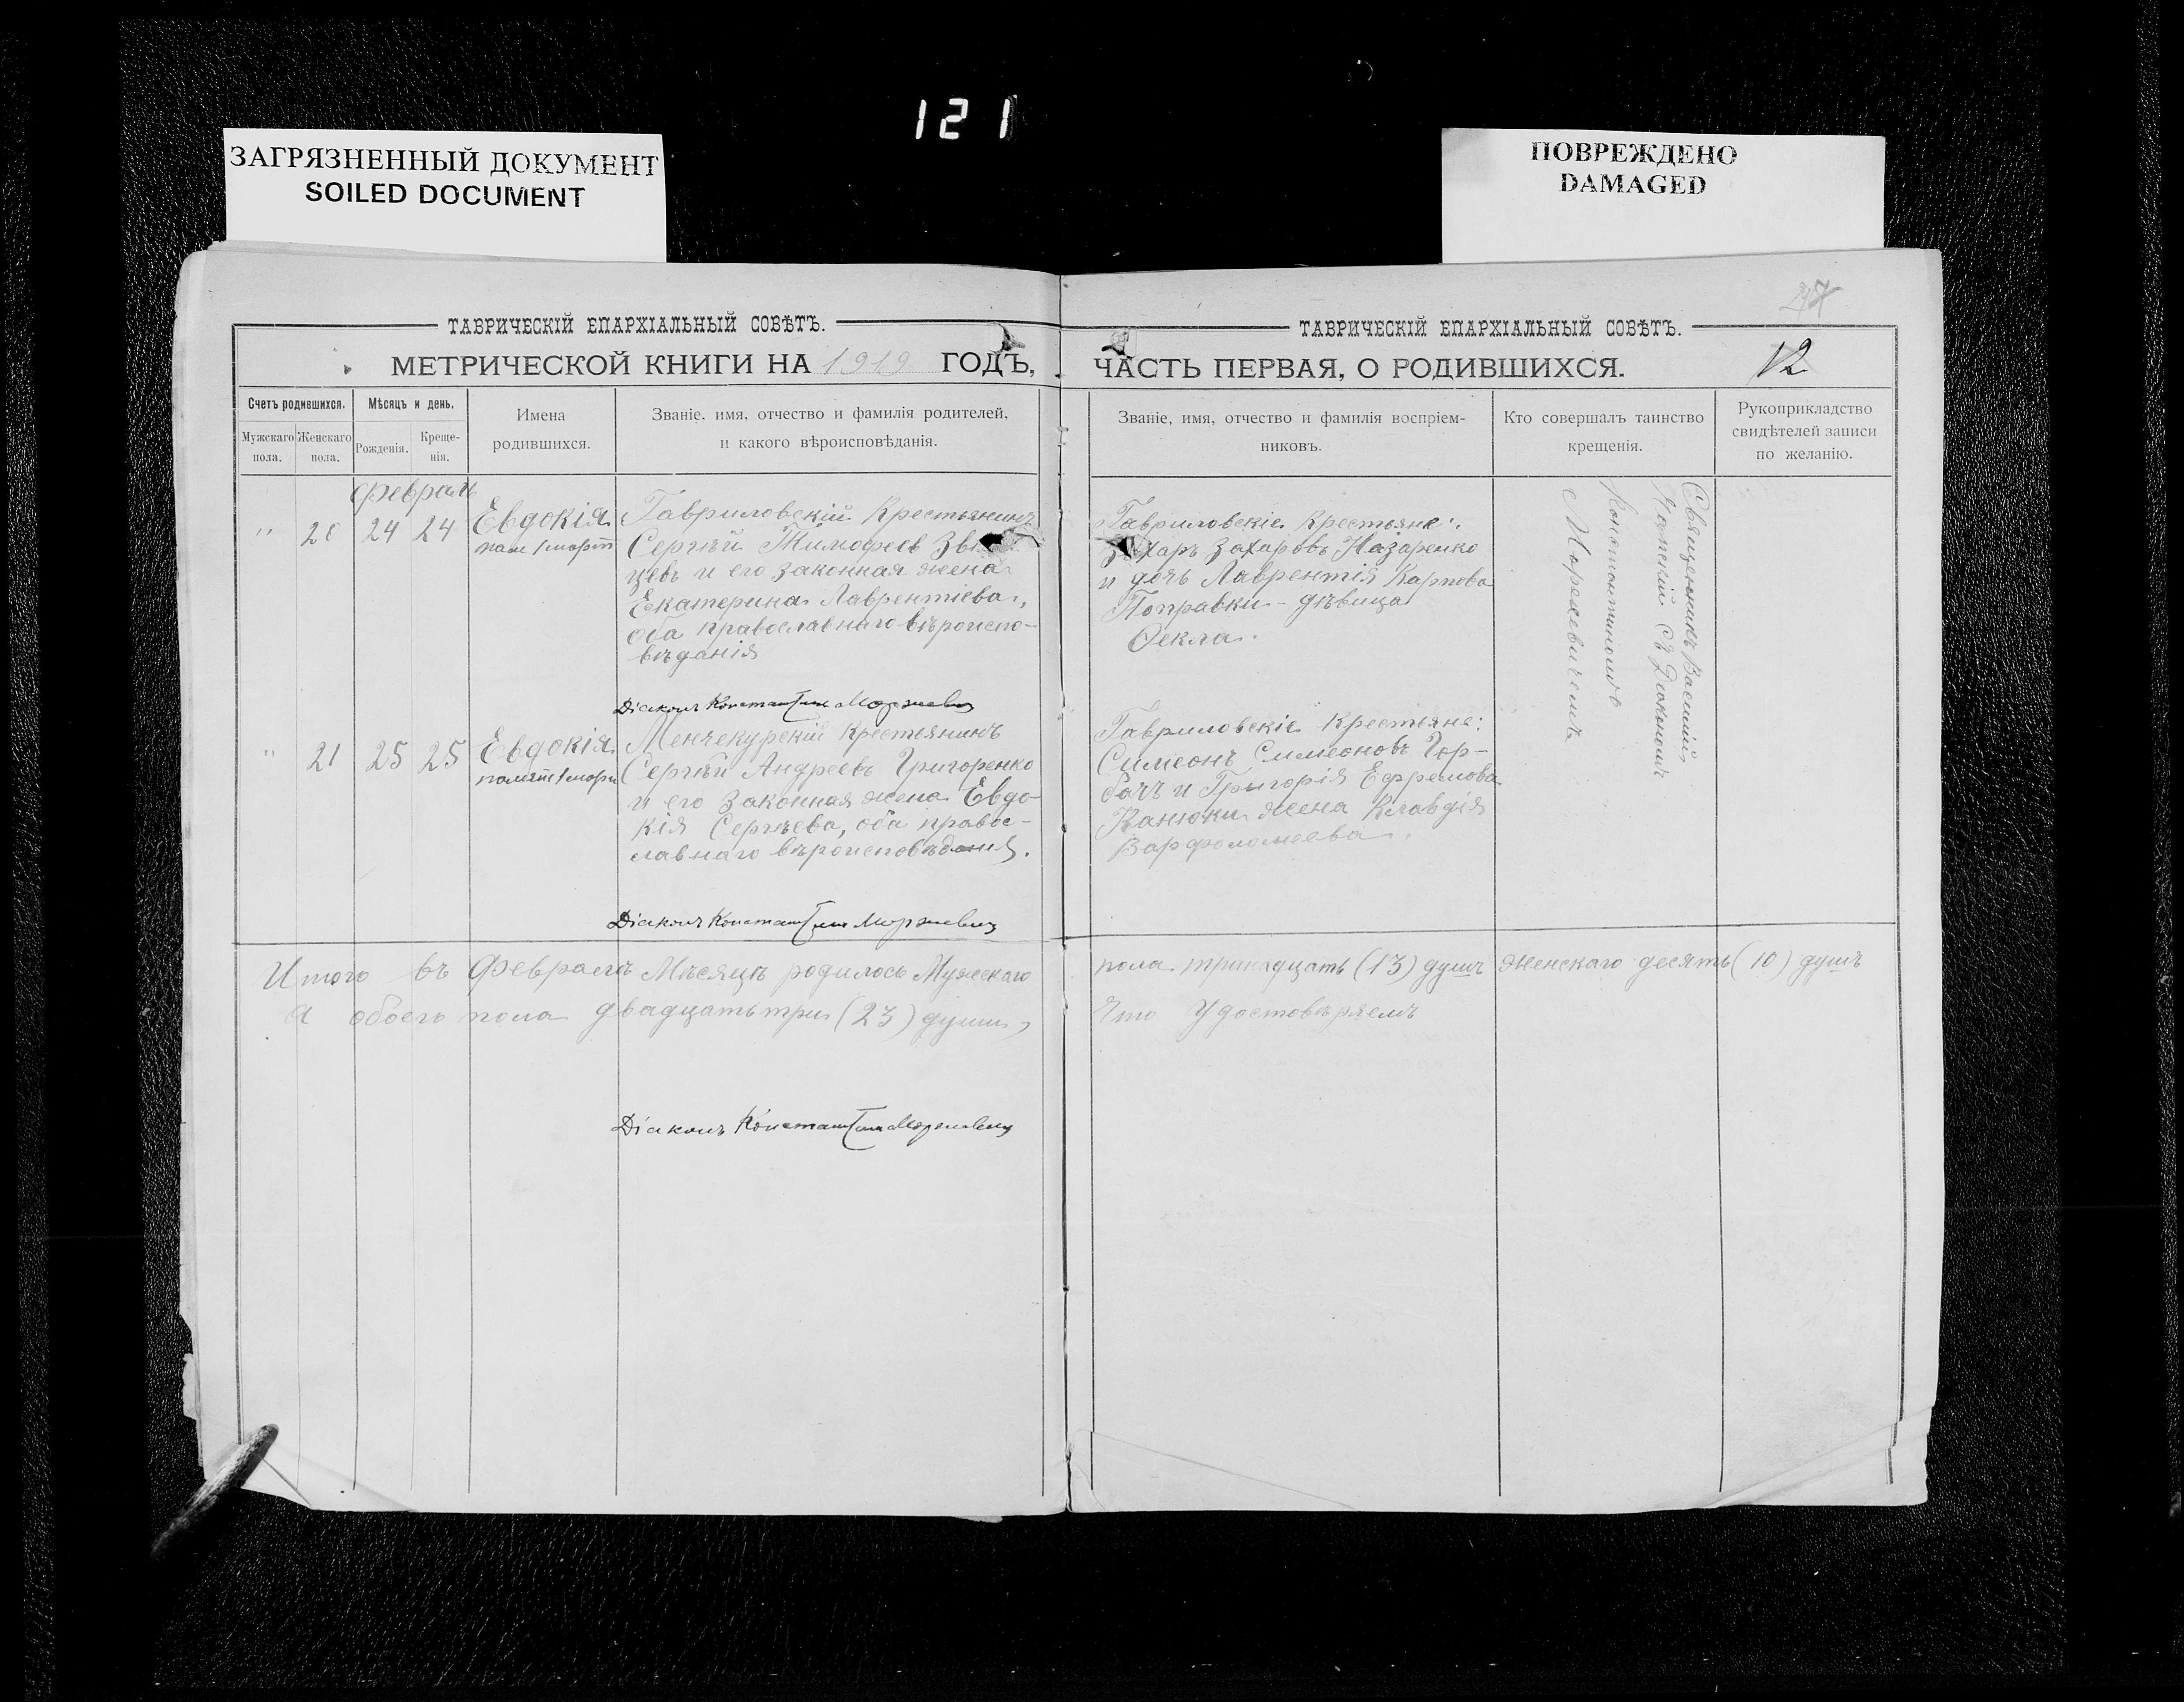 121
ЗАГРЯЗНЕННЫЙ ДОКУМЕНТ
SOILED DOCUMENT
ПОВРЕЖДЕНО
DAMAGED
ТАВРИЧЕСКІЙ ЕПАРХІАЛЬНЫЙ СОВѢТЪ.
МЕТРИЧЕСКОЙ КНИГИ НА 1919 ГОДЪ,
Счетъ родившихся.
Мѣсяцъ и день.
Мужскаго пола.
Женскаго пола.
Рожденія.
Креще-
нія.
Имена
родившихся.
Званіе, имя, отчество и фамилія родителей,
и какого вѣроисповѣданія.
Февраль
" 20 24 24 Евдокія
Гавриловскій Крестьянинъ
Сергѣй Тимофеевъ
цевъ и его законная жена
Екатерина Лаврентіева,
оба православнаго вѣроиспо-
вѣданія
Діаконъ Константинъ Моржевич
" 21 25 25 Евдокія
Менчекурскій Крестьянинъ
Сергѣй Андреевъ Григоренко
и его законная жена Евдо-
кія Сергѣева, оба правос-
лавнаго вѣроисповѣданія.
Діаконъ Константинъ Моржевич
Итого въ Февралѣ Мѣсяцѣ родилось Мужескаго
а обоего пола двадцать три (23) души,
Діаконъ Константинъ Моржевич
ТАВРИЧЕСКІЙ ЕПАРХІАЛЬНЫЙ СОВѢТЪ.
ЧАСТЬ ПЕРВАЯ, О РОДИВШИХСЯ.
12
Званіе, имя, отчество и фамилія воспріем-
никовъ.
Кто совершалъ таинство
крещенія.
Рукоприкладство
свидѣтелей записи
по желанію.
Гавриловскіе крестьяне:
Захаръ Захаровъ Назаренко
и дочь Лаврентія Карпова
Поправки - дѣвица
Ѳекла.
Гавриловскіе Крестьяне:
Симеонъ Симеоновъ Гор-
бачъ и Григорія Ефремова
Канюки жена Клавдія
Варфоломеева.
Священникъ Василій
съ Діакономъ
Константиномъ
Моржевичемъ
пола тринадцать (13) душъ Женскаго десять (10) душъ
Что Удостовѣряемъ